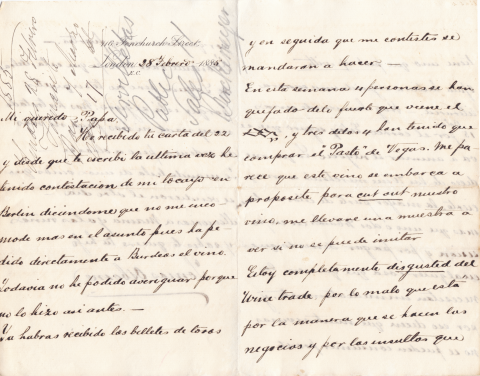 Fenchurch Street,
London, 28 Febrero 1885
E.C.
Mi querido Papa.
He recibido tu carta del 22
y desde que te escribi la ultima vez he
tenido contestacion de mi tocayo en
Berlin diciendome que no me inco
mode mas en el asunto pues ha pe
dido directamente a Burdeos el vino.
Todavia no he podido averiguar porque
no lo hizo asi antes. —
Ya habras recibido los billetes de toros
y en seguida que me contestes se
mandaran a hacer —
En esta semana 4 personas se han
quejado de lo fuerte que viene el
y tres de las 4 han tenido que
comprar el Pasto de Vegas. Me pa
rece que este vino se embarca a
proposito para cut out nuestro
vino, me llevare una muestra a
ver si no se puede imitar
Estoy completamente disgusted del
Wine trade, por lo malo que está
por la manera que se hacen los
negocios y por los insultos que